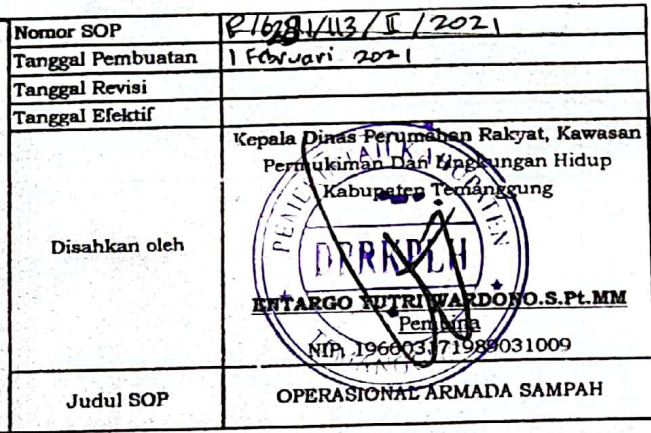 Nomor SOP
Tanggal Pembuatan 1 Februari 2021
Tanggal Revisi
Tanggal Efektif
Disahkan oleh
Kepala Dinas Perumahan Rakyat, Kawasan
Permukiman Dan Lingkungan Hidup
Kabupaten Temanggung
PEMERINTAH KABUPATEN
DPRKPLH
ENTARGO YUTRI WARDONO.S.Pt.MM
Pembina
NIP.
Judul SOP OPERASIONAL ARMADA SAMPAH